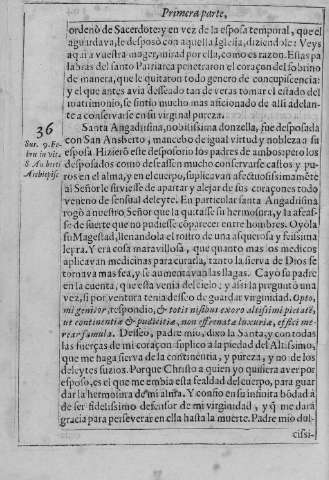 Primera parte,
ordenò de Sacerdote: y en vez de la esposa temporal, que el
aguardava, le desposò con aquella Iglesia, diziendole: Veys
aqui a vuestra muger, mirad por ella, como es razon. Estas pa
labras del santo Patriarca penetraron el coraçon del sobrino
de manera, que le quitaron todo genero de concupiscencia:
y el que antes avia desseado tan de veras tomar el estado del
matrimonio, se sintio mucho mas aficionado de alli adelan-
te a conservarse en su virginal pureza.
36
Sur. 9. Fe-
bru in vit.
S. Ansberti
Archiepisc.
Santa Angadrisina, nobilissima donzella, fue desposada
con San Ansberto, mancebo de igual virtud y nobleza a su
esposa. Hizierõ este desposorio los padres de ambos: pero los
desposados como desseassen mucho conservarse castos y pu-
ros en el alma, y en el cuerpo, suplicavan afectuosissimamẽte
al Señor le sirviesse de apartar y alejar de sus coraçones todo
veneno de sensual deleyte. En particular santa Angadrisina
rogò a nuestro Señor que la quitasse su hermosura, y la afeas-
se de suerte que no pudiesse cõparecer entre hombres. Oyòla
su Magestad, llenandola el rostro de una asquerosa y feissima
lepra. Y era cosa maravillosa, que quanto mas los medicos
aplicavan medicinas para curarla, tanto la sierva de Dios se
tornava mas fea, y se aumentavan las llagas. Cayò su padre
en la cuenta, que esta venia del cielo: y assi la preguntò una
vez, si por ventura tenia desseo de guardar virginidad. Opto,
mi genitor, respondio, & totis nisibus exoro altissimi pietatẽ,
ut continentiæ & pudicitiæ, non effrenatæ luxuriæ, effici me-
rear famula. Desseo, padre mio, dixo la Santa, y con todas
las fuerças de mi coraçon suplico a la piedad del Altissimo,
que me haga sierva de la continencia, y pureza, y no de los
deleytes suzios. Porque Christo a quien yo quisiera aver por
esposo, es el que me embia esta fealdad del cuerpo, para guar-
dar la hermosura de mi alma. Y confio en su infinita bõdad à
de ser fidelissimo defensor de mi virginidad, y q̃ me darà
gracia para perseverar en ella hasta la muerte. Padre mio dul-
cissi-